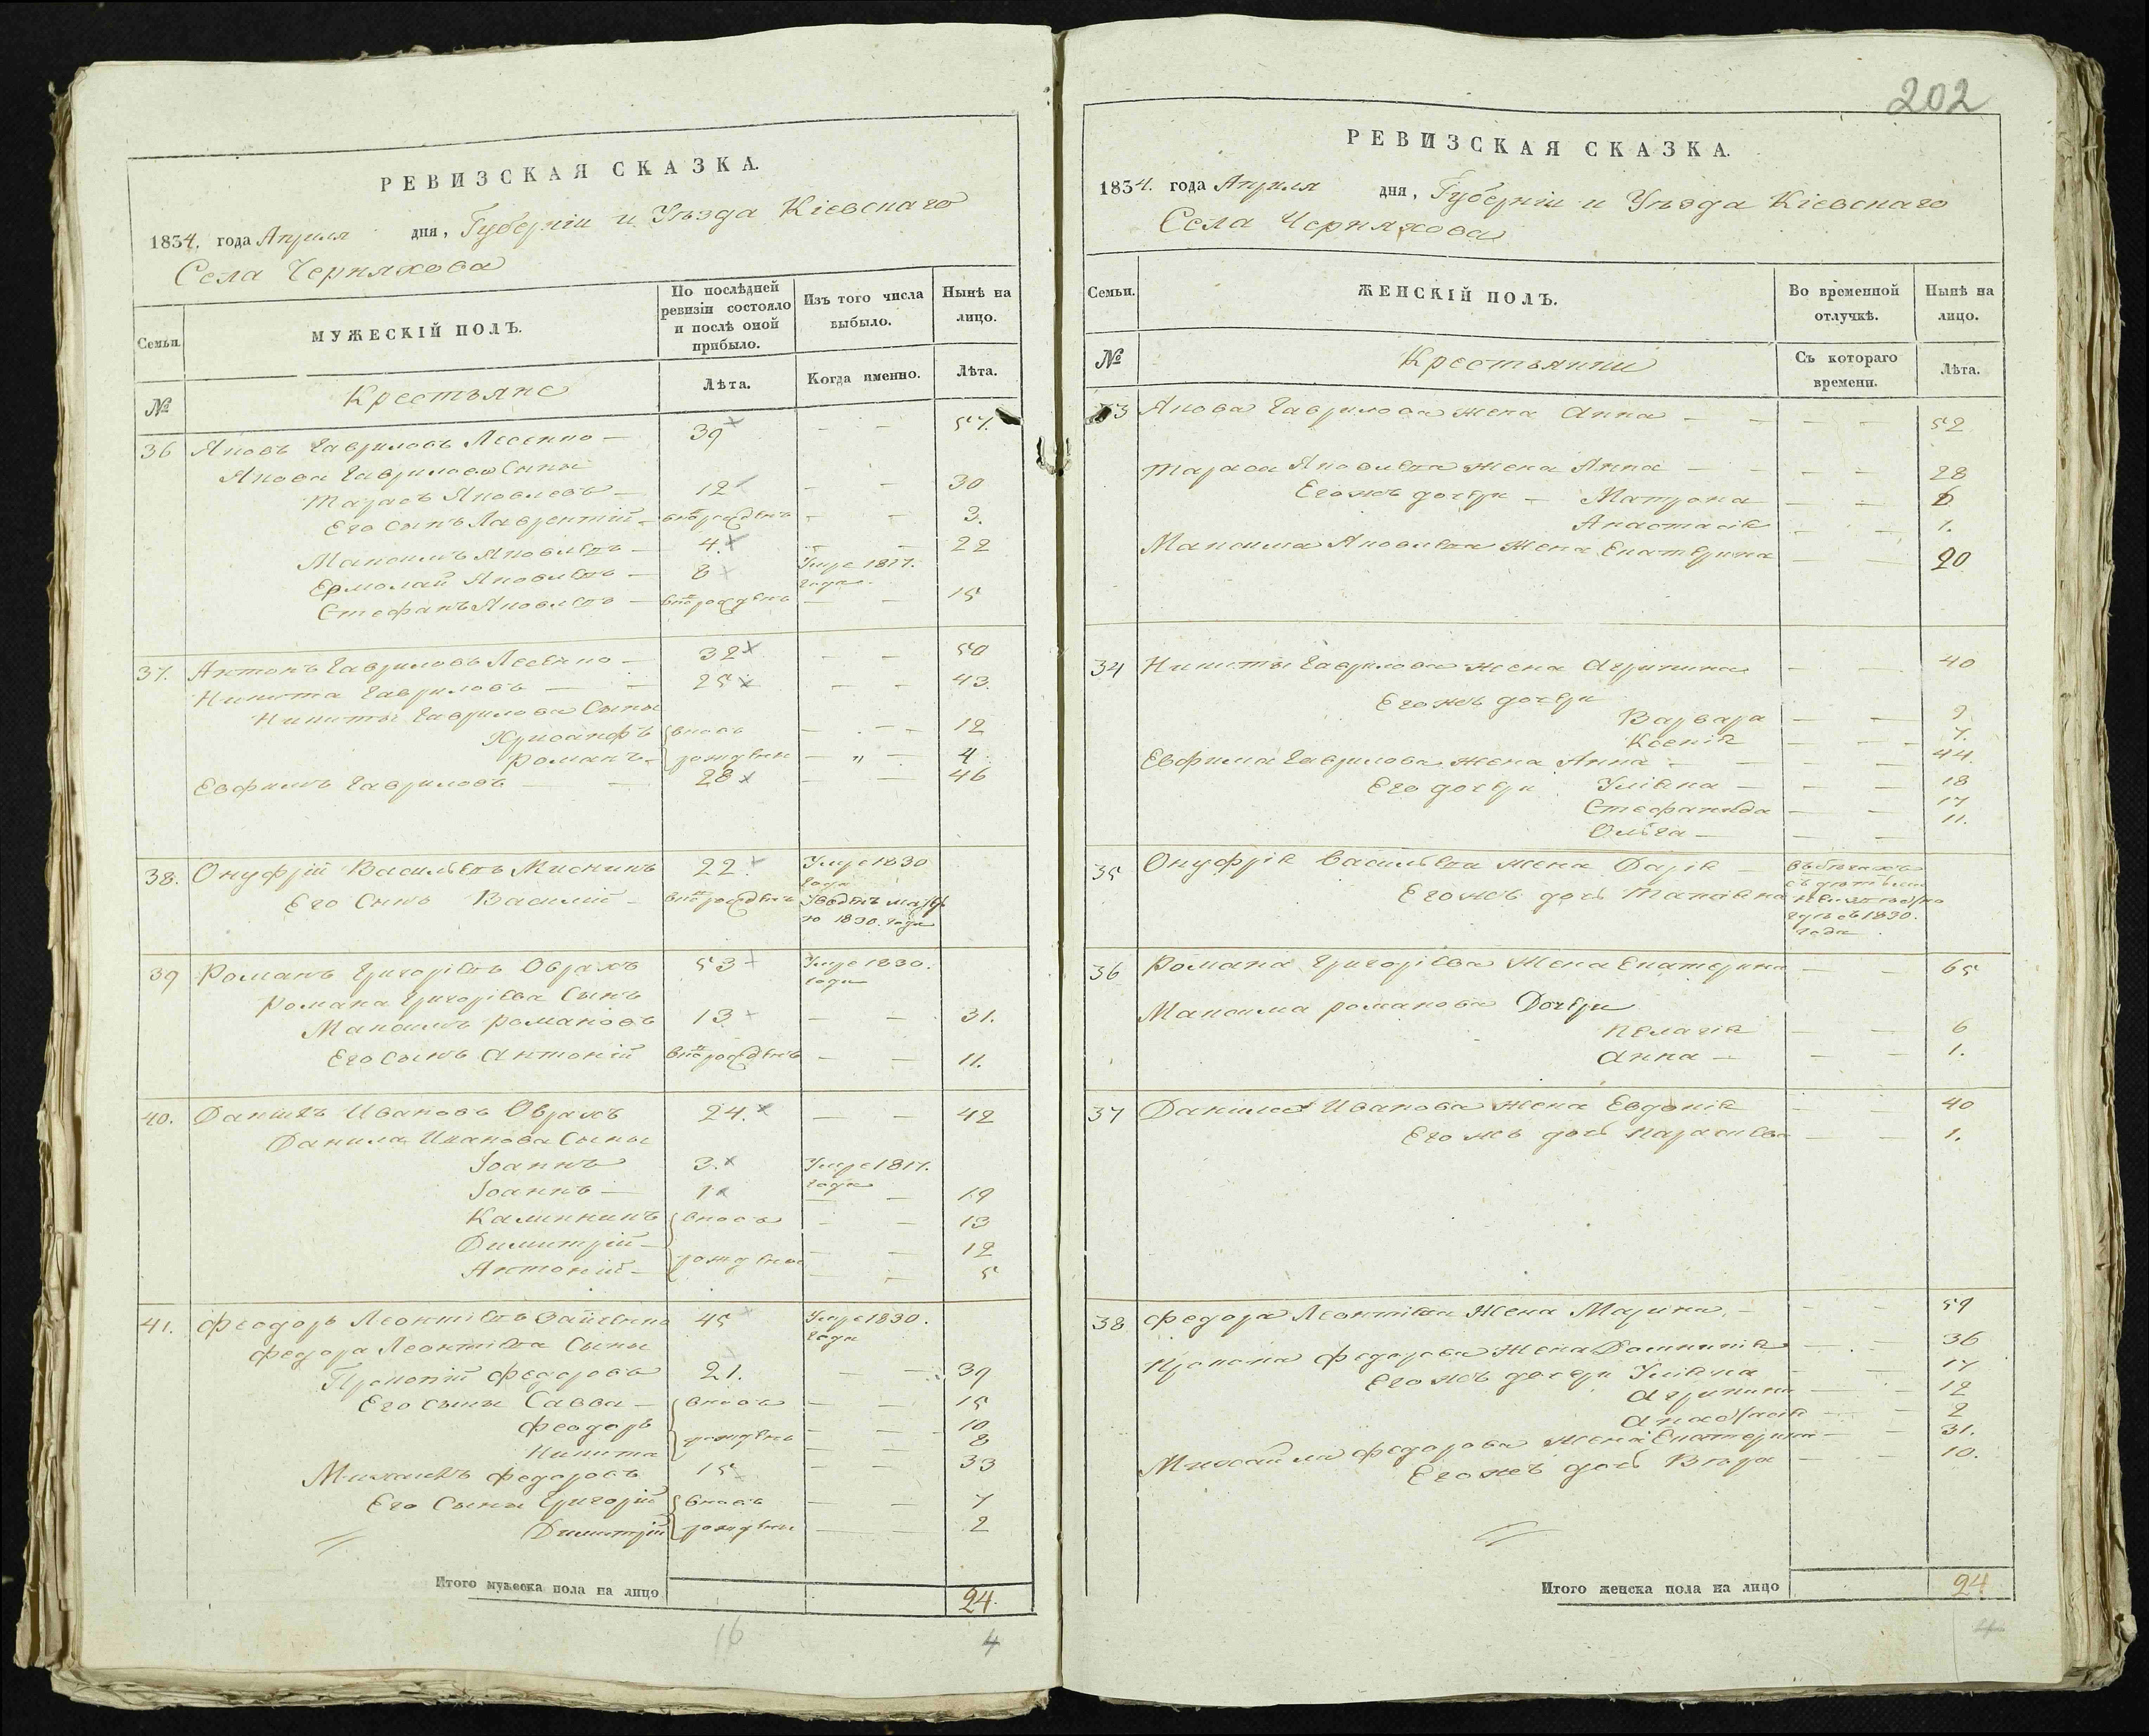 РЕВИЗСКАЯ СКАЗКА.
1834. года Апреля дня, Губерніи и Уѣзда Кіевскаго
Села Черняхова
Семьи.
МУЖЕСКІЙ ПОЛЪ.
По послѣдней ревизіи состояло и послѣ оной прибыло.
Изъ того числа выбыло.
Нынѣ на лицо.
№
Крестьяне
Лѣта.
Когда именно.
Лѣта.
36 Яковъ Гавриловъ Лесенко — 39 — — 57.
Якова Гаврилова Сыны
Тарасъ Яковлевъ — 12 — — 30
Его сынъ Лаврентій — вновь рожденъ — — 3.
Максимъ Яковлевъ — 4. — — 22
Ермолай Яковлевъ — 8 Умре 1817. года
Стефанъ Яковлевъ — вновь рожденъ — — 15
37. Антонъ Гавриловъ Лесенко — 32 — — 50
Никита Гавриловъ — — 25 — — 43.
Никиты Гаврилова Сыны
Хрисанфъ вновь — — 12
Романъ — рожденны — „ — 4
Евфимъ Гавриловъ — — 28 — — 46
38. Онуфрій Васильевъ 22. Умре 1830 года
Его Сынъ Василій — вновь рожденъ 1830. года
39 Романъ Григоріевъ 53 Умре 1830. года
Романа Григоріева Сынъ
Максимъ Романовъ 13 — — 31.
Его сынъ Антоній вновь рожденъ — — 11.
40. Данилъ Ивановъ 24. — — 42
Данила Иванова Сыны
Іоаннъ 3. Умре 1817. года
Іоаннъ — 1 — — 19
Каленикъ вновь — — 13
Димитрій — рожденны — — 12
Антоній — — — 5
41. Феодоръ Леонтіевъ 45 Умре 1830. года
Федора Леонтіева Сыны
Прокопій Федоровъ 21. — — 39
Его сыны Савва — вновь — — 15
Феодоръ рожденны — — 10
Никита — — 8
Михаилъ Федоровъ 15 — — 33
Его Сыны Григорій вновь — — 7
Димитрій рожденны — — 2
Итого мужеска пола на лицо 24.
16 4
202
РЕВИЗСКАЯ СКАЗКА.
1834. года Апреля дня, Губерніи и Уѣзда Кіевскаго
Села Черняхова
Семьи.
ЖЕНСКІЙ ПОЛЪ.
Во временной отлучкѣ.
Нынѣ на лицо.
№
Крестьянки
Съ котораго времени.
Лѣта.
33 Якова Гаврилова жена Анна — — — — 52
Тараса Яковлева жена Анна — — — — 28
Его жъ дочери — Матрона — — 6
Анастасія — — 1.
Максима Яковлева жена Екатерина — — 20
34 Никиты Гаврилова жена Агрипина — — 40
Его жъ дочери
Варвара — — 9
Ксенія — — 7.
Евфима Гаврилова жена Анна — — — 44.
Его дочери Уліана — — — 18
Стефанида — — 17
Ольга — — — 11.
35 Онуфрія Васильева жена Дарія —
Его жъ дочь Татіана
съ 1830. года
36 Романа Григоріева жена Екатерина — — 65
Максима Романова Дочери
Пелагія — — 6
Анна — — — 1.
37 Данила Иванова жена Евдокія — — 40
Его жъ дочь Параскева — — 1.
38 Федора Леонтіева Жена Марина — — — 59
Прокопа Федорова жена Домникія — — 36
Его жъ дочери Уліана — — 17
Агрипина — — 12
Анастасія — — 2
Михайла Федорова жена Екатерина — — 31.
Его жъ дочь Вѣра — — 10.
Итого женска пола на лицо 24